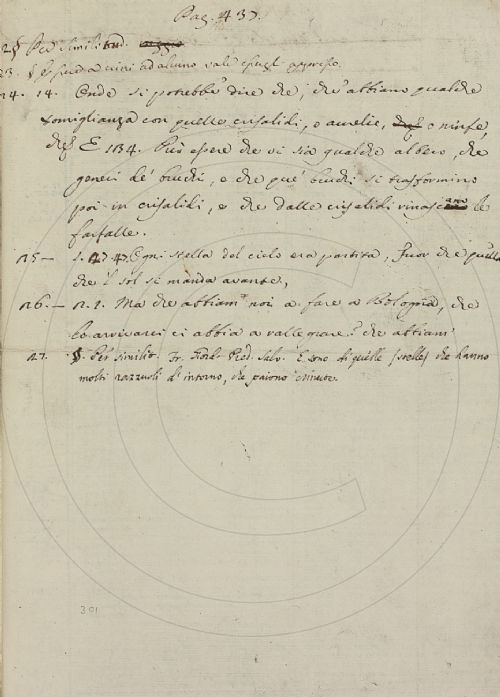 Pag. 437.
2§ Per similitud.
23. § E sued a cui ad alcuno vale
24. 14. Onde si potrebbe dire che, ch' abbiano qualche
somiglianza con quelle crisalidi, o aurelie, o ninfe,
E 1134. Può essere che vi sia qualche albero, che
generi de' bruchi, e che que' bruchi si trasformino
poi in crisalidi, e che dalle crisalidi rinasc ano le
farfalle.
25 — Ogni stella del cielo era partita, Fuor che quella
che 'l sol si manda avante,
26. — n. 1. Ma che abbiam noi a fare a Bologna, che
lo arrivarci ci abbia a rallegrare? che abbiam
27. §. Per similit. Fr. Giord. Pred. Salv. E sono di quelle (stelle) che hanno
molti razzuoli d' intorno, che paiono chiuate.
301